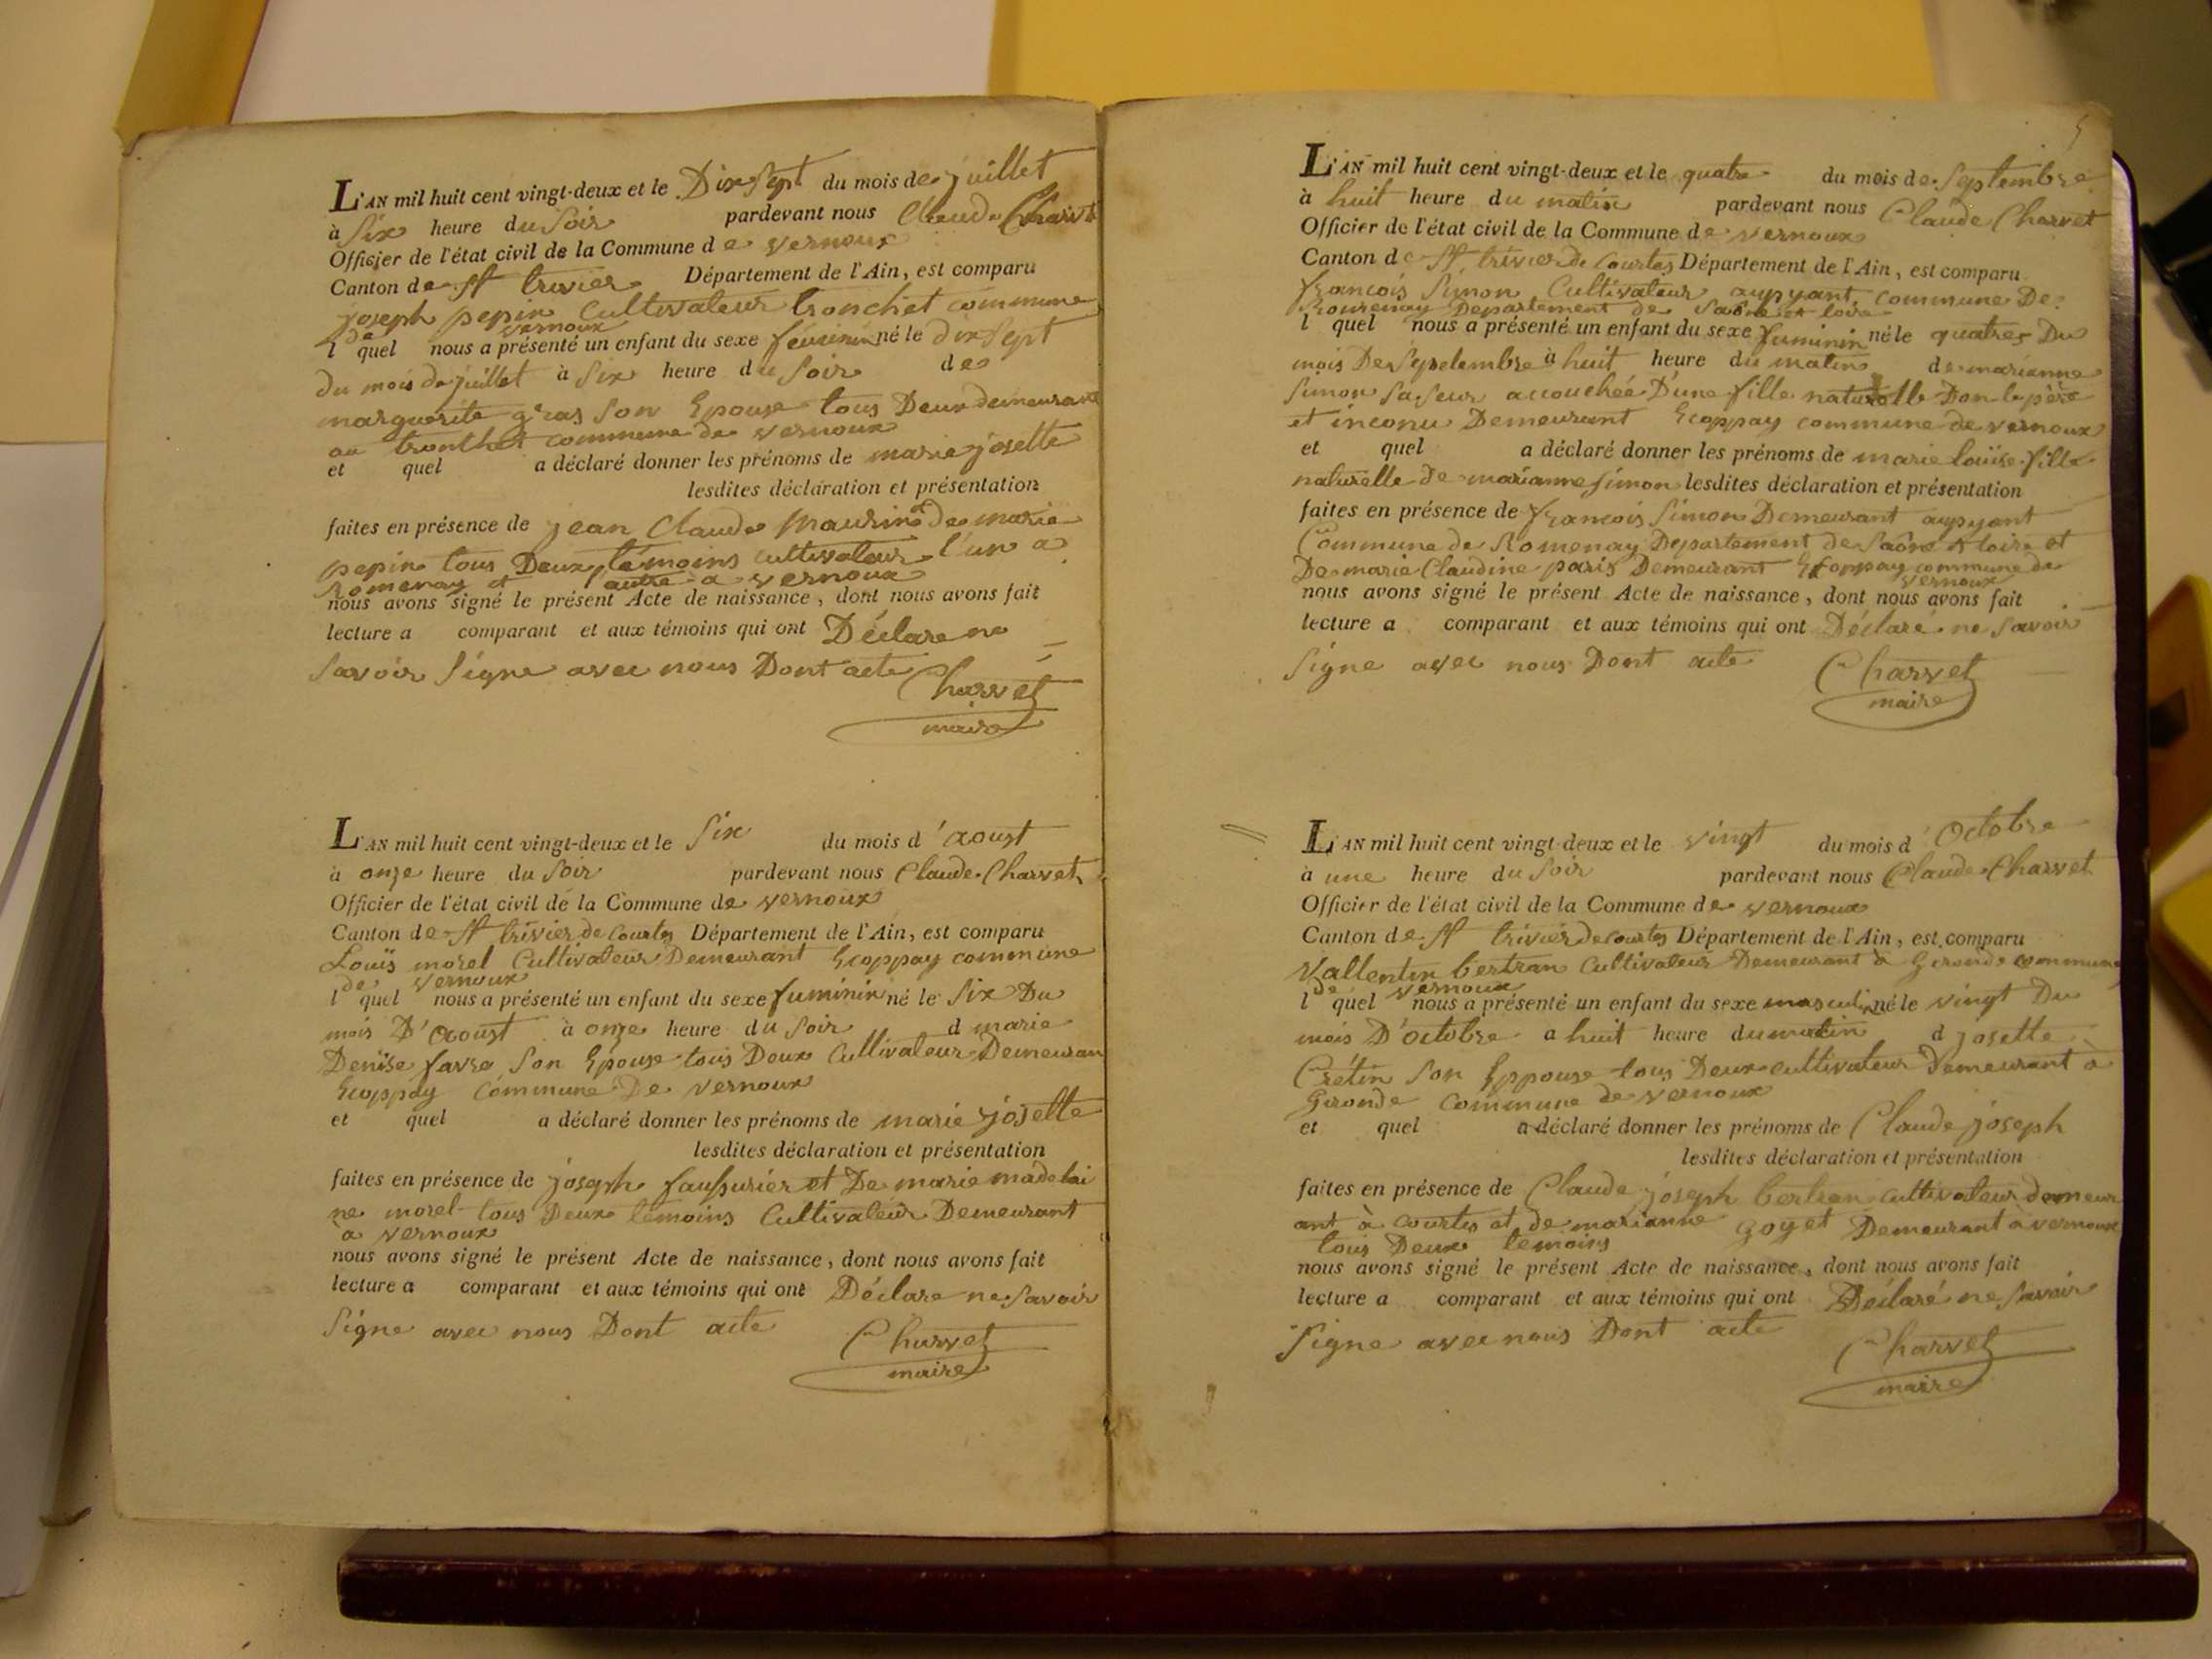 L'AN mil huit cent vingt-deux et le Dix Sept du mois de juillet
à Six heure du Soir pardevant nous Claude Charvet
Officier de l'état civil de la Commune de vernoux
Canton de St trivier Département de l'Ain, est comparu
joseph pepin Cultivateur tronchet commune
de vernoux
l quel nous a présenté un enfant du sexe féminin né le dix Sept
du mois de juillet à Six heure du Soir de
marguerite gras Son Epouse tous Deux demeurant
au tronchet commune de vernoux
et quel a déclaré donner les prénoms de marie josette
lesdites déclaration et présentation
faites en présence de jean Claude Maurin et de marie
pepin tous Deux témoins cultivateur l'un a
Romenay et autre a vernoux
nous avons signé le présent Acte de naissance, dont nous avons fait
lecture a comparant et aux témoins qui ont Déclare ne
Savoir Signe avec nous Dont acte Charvet
maire
L'AN mil huit cent vingt-deux et le Six du mois d'aoust
à onze heure du Soir pardevant nous Claude Charvet
Officier de l'état civil de la Commune de vernoux
Canton de St trivier de Courtes Département de l'Ain, est comparu
Louis morel Cultivateur Demeurant Ecoppay commune
de vernoux
l quel nous a présenté un enfant du sexe fuminin né le Six Du
mois D'aoust à onze heure du Soir d marie
Denise favre Son Epouse tous Deux Cultivateur Demeuran
Ecoppay Commune De vernoux
et quel a déclaré donner les prénoms de marie josette
lesdites déclaration et présentation
faites en présence de joseph et De marie madelai
ne morel tous Deux temoins Cultivateur Demeurant
a vernoux
nous avons signé le présent Acte de naissance, dont nous avons fait
lecture a comparant et aux témoins qui ont Déclare ne Savoir
Signe avec nous Dont acte Charvet
maire
5
L'AN mil huit cent vingt-deux et le quatre du mois de Septembre
à huit heure du matin pardevant nous Claude Charvet
Officier de l'état civil de la Commune de vernoux
Canton de St trivier de Courtes Département de l'Ain, est comparu
francois Simon Cultivateur aupyant commune De
Romenay Departement de Saône et loire
l quel nous a présenté un enfant du sexe fuminin né le quatre Du
mois De Sepetembre à huit heure du matin de marianne
Simon Sa Seur accouchée D'une fille naturelle Don le père
et inconu Demeurant Ecoppay commune de vernoux
et quel a déclaré donner les prénoms de marie louise fille
naturelle de marianne Simon lesdites déclaration et présentation
faites en présence de francois Simon Demeurant aupyant
Commune de Romenay Departement de Saône et loire et
De marie Claudine paris Demeurant Ecoppay commune de
vernoux
nous avons signé le présent Acte de naissance, dont nous avons fait
lecture a comparant et aux témoins qui ont Déclare ne Savoir
Signe avec nous Dont acte Charvet
maire
L'AN mil huit cent vingt-deux et le vingt du mois d'Octobre
à une heure du Soir pardevant nous Claude Charvet
Officier de l'état civil de la Commune de vernoux
Canton de St trivier de Courtes Département de l'Ain, est comparu
Vallentin bertran Cultivateur Demeurant à Gironde commune
de vernoux
l quel nous a présenté un enfant du sexe masculin né le vingt Du
mois D'octobre a huit heure du matin d josette
Crétin Son Eppouse tous Deux cultivateur Demeurant à
Gironde Commune de vernoux
et quel a déclaré donner les prénoms de Claude joseph
lesdites déclaration et présentation
faites en présence de Claude joseph bertran cultivateur demeur
ant à Courtes et de marianne goyet Demeurant à vernoux
tous Deux temoins
nous avons signé le présent Acte de naissance, dont nous avons fait
lecture a comparant et aux témoins qui ont Déclaré ne Savoir
Signe avec nous Dont acte Charvet
maire